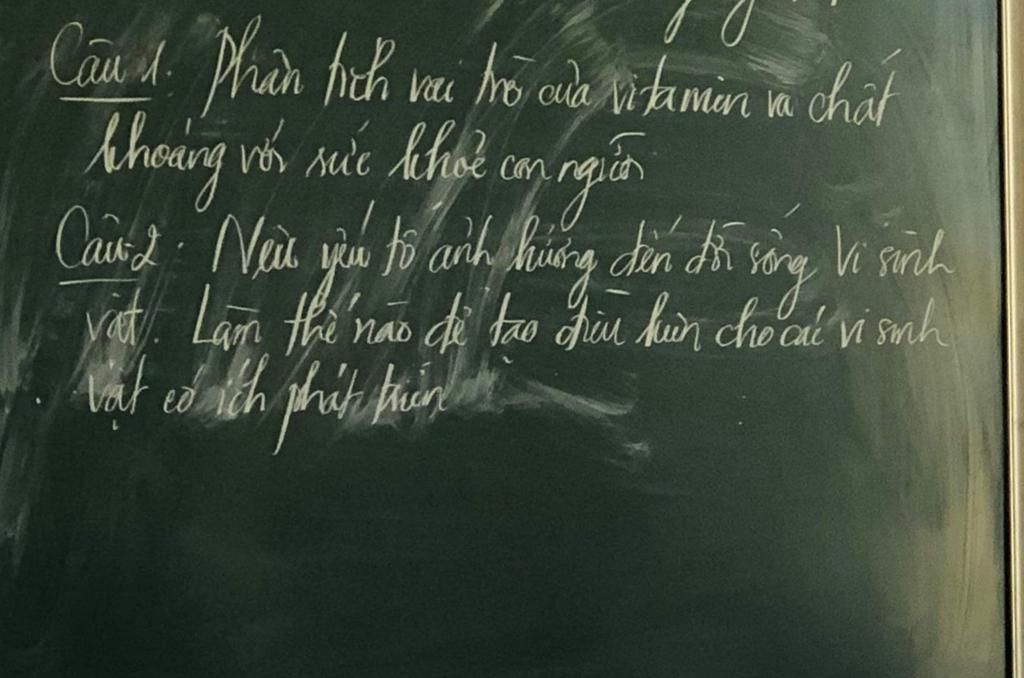 Câu 1. Phân tích vai trò của vitamin và chất
khoáng với sức khoẻ con người
Câu 2. Nêu yếu tố ảnh hưởng đến đời sống vi sinh
vật. Làm thế nào để tạo điều kiện cho các vi sinh
vật có ích phát triển